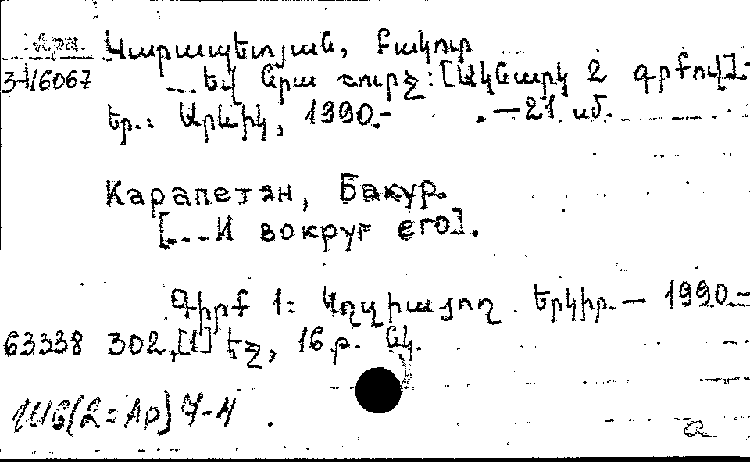 Арм. Կարապետյան, Բակուր
3-16067 ...Եվ նրա շուրջ: [Ակնարկ 2 գրքով].-
Եր.: Արևիկ, 1990.- .-21 սմ.
Карапетян, Бакур.
[...И вокруг его].
Գիրք 1: երկիր.- 1990.-
63338 302,[1] էջ, 16 թ. նկ.